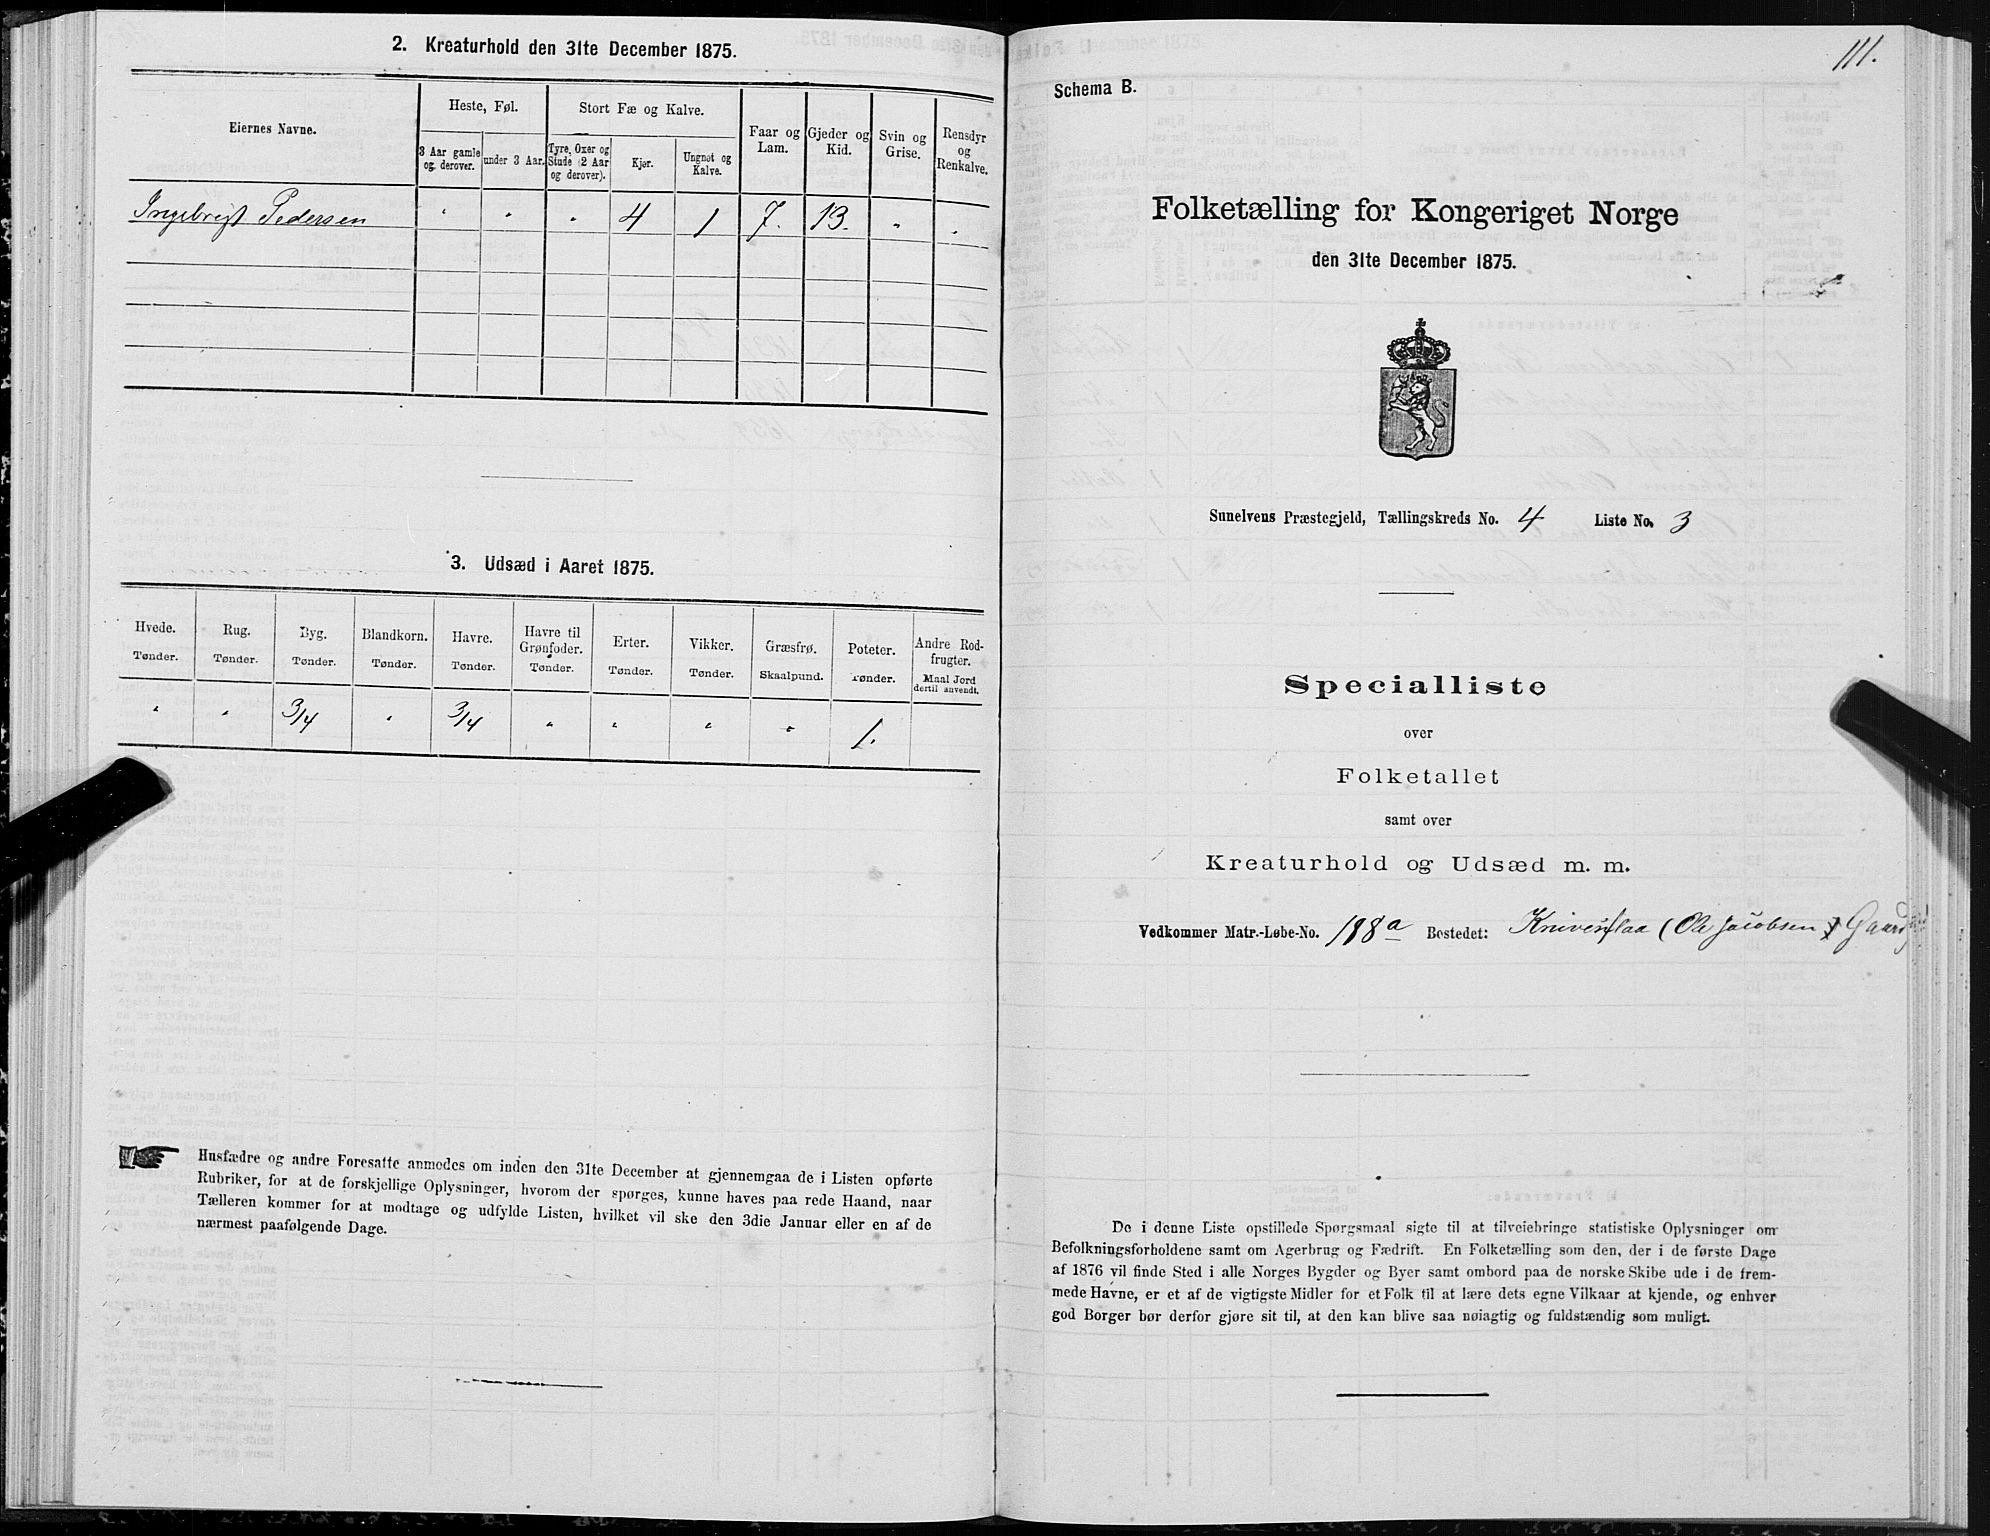 2. Kreaturhold den 31te December 1875.
Eiernes Navne.
Heste, Føl.
Stort Fæ og Kalve.
Faar og Lam.
Gjeder og Kid.
Svin og Grise.
Rensdyr og Renkalve.
3 Aar gamle og derover.
under 3 Aar.
Tyre, Oxer og Stude (2 Aar og derover).
Kjør.
Ungnøt og Kalve.
Ingebrigt Pedersen " " " 4 1 7. 13. " "
3. Udsæd i Aaret 1875.
Hvede. Rug. Byg. Blandkorn. Havre. Havre til Grønfoder. Erter. Vikker. Græsfrø. Poteter. Andre Rodfrugter.
Tønder. Tønder. Tønder. Tønder. Tønder. Tønder. Tønder. Tønder. Skaalpund. Tønder. Maal Jord dertil anvendt.
" " 3/4 " 3/4 " " " " 1.
Husfædre og andre Foresatte anmodes om inden den 31te December at gjennemgaa de i Listen opførte
Rubriker, for at de forskjellige Oplysninger, hvorom der spørges, kunne haves paa rede Haand, naar
Tælleren kommer for at modtage og udfylde Listen, hvilket vil ske den 3die Januar eller en af de
nærmest paafølgende Dage.
111.
Schema B.
Folketælling for Kongeriget Norge
den 31te December 1875.
Sunelvens Præstegjeld, Tællingskreds No. 4 Liste No. 3
Specialliste
over
Folketallet
samt over
Kreaturhold og Udsæd m. m.
Vedkommer Matr.-Løbe-No. 198a Bostedet: Kniversflaa (Ole Jacobsen
De i denne Liste opstillede Spørgsmaal sigte til at tilveiebringe statistiske Oplysninger om
Befolkningsforholdene samt om Agerbrug og Fædrift. En Folketælling som den, der i de første Dage
af 1876 vil finde Sted i alle Norges Bygder og Byer samt ombord paa de norske Skibe ude i de frem-
mede Havne, er et af de vigtigste Midler for et Folk til at lære dets egne Vilkaar at kjende, og enhver
god Borger bør derfor gjøre sit til, at den kan blive saa nøiagtig og fuldstændig som muligt.